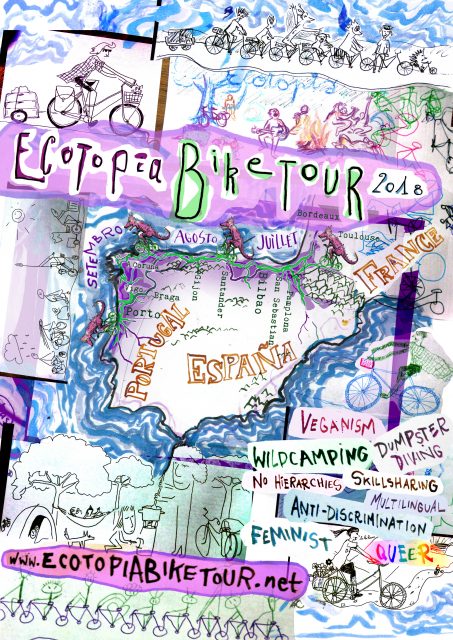 Ecotopia
ECOTOPIA BIKETOUR 2018
Bordeaux
SETEMBRO
AGOSTO
JUILLET
Toulouse
FRANCE
Coruna
Gijon
Santander
Bilbao
San Sebastian
Pamplona
Vigo
Braga
Porto
PORTUGAL
ESPAÑA
VEGANISM
WILDCAMPING
DUMPSTER
DIVING
NO HIERARCHIES
SKILLSHARING
MULTILINGUAL
ANTI-DISCRIMINATION
FEMINIST
QUEER
www.ECOTOPIABIKETOUR.net